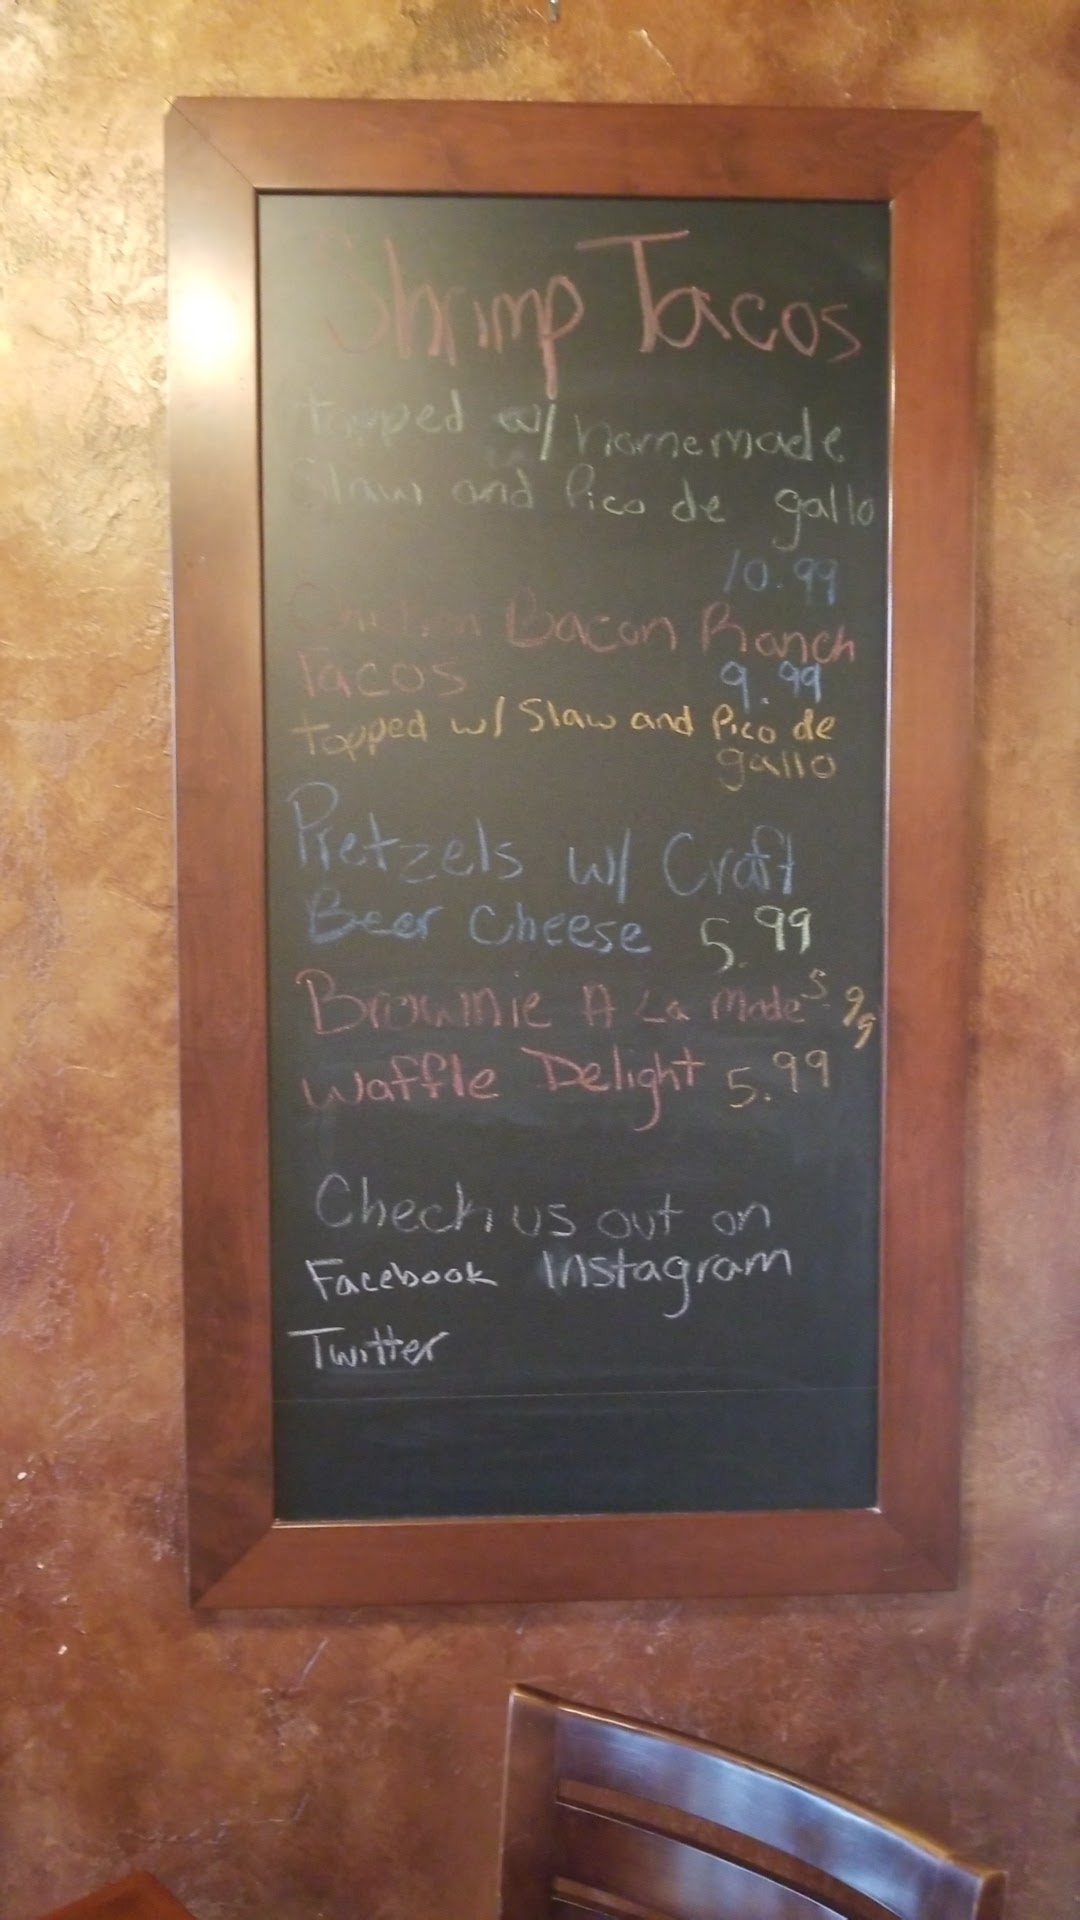 Shrimp Tacos
topped w/ homemade
Slaw and Pico de gallo
10.99
Chicken Bacon Ranch
Tacos 9.99
topped w/ Slaw and Pico de
gallo
Pretzels w/ Craft
Beer Cheese 5.99
Brownie A La Mode 5.99
Waffle Delight 5.99
Check us out on
Facebook Instagram
Twitter